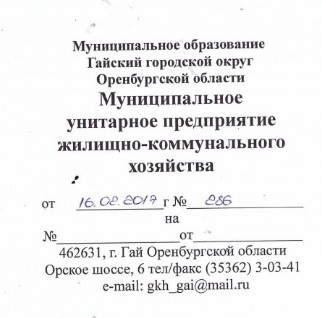 Муниципальное образование
Гайский городской округ
Оренбургской области
Муниципальное
унитарное предприятие
жилищно-коммунального
хозяйства
от 16.02.2017 г № 286
на
№ от
462631, г. Гай Оренбургской области
Орское шоссе, 6 тел/факс (35362) 3-03-41
e-mail: gkh_gai@mail.ru